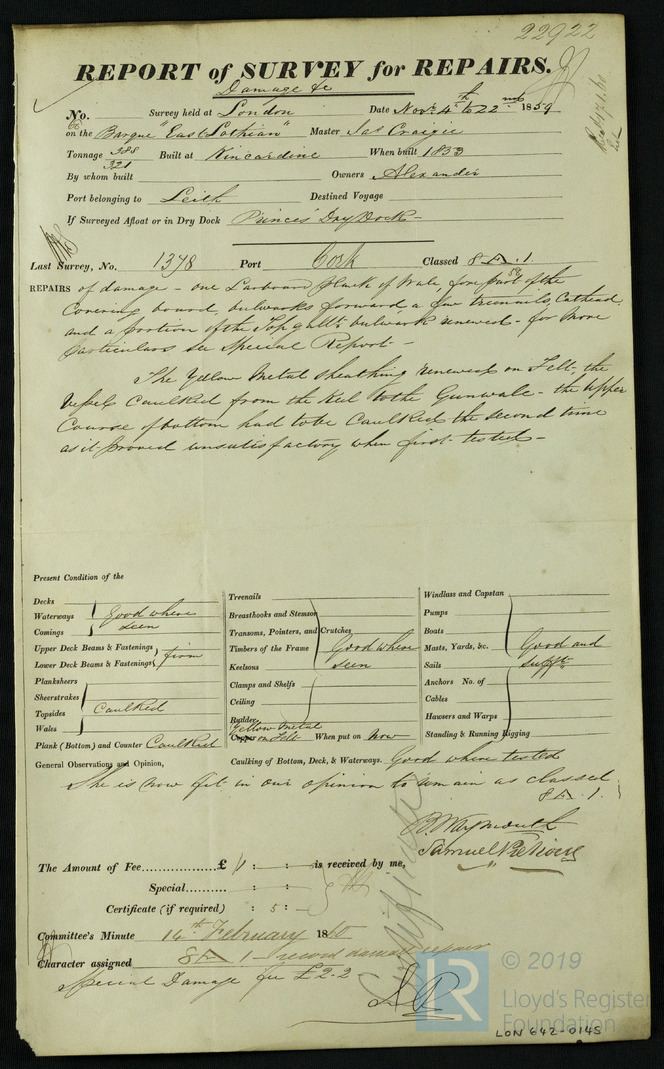 22922
REPORT of SURVEY for REPAIRS.
Damage &c
No. Survey held at London Date Novr 4th to 22nd 1859
on the Barque "East Lothian" Master Jas Craigie
Tonnage 388 Built at Kincardine When built 1853
321
By whom built Owners Alexander
Port belonging to Leith Destined Voyage
If Surveyed Afloat or in Dry Dock Princes Dry Dock -
Last Survey, No. 1378 Port Cork Classed 8 A. 1.
58
REPAIRS of damage - one Larboard Plank of Wale, fore part of the
Covering board, bulwarks forward a few treenails, Cathead
and a portion of the Topgallt bulwark renewed - for more
particulars see Special Report -
The Yellow Metal Sheathing renewed on Felt, the
Vessel Caulked from the Keel to the Gunwale - the Upper
Course of bottom had to be Caulked the second time
as it proved unsatisfactory when first tested -
Present Condition of the
Decks
Waterways Good where
Comings seen
Upper Deck Beams & Fastenings
Lower Deck Beams & Fastenings firm
Planksheers
Sheerstrakes
Topsides Caulked
Wales
Plank (Bottom) and Counter Caulked
Treenails
Breasthooks and Stemson
Transoms, Pointers, and Crutches
Timbers of the Frame Good where
Keelsons seen
Clamps and Shelfs
Ceiling
Rudder
Yellow Metal
Copper on Felt When put on Now
Windlass and Capstan
Pumps
Boats
Masts, Yards, &c. Good and
Sails sufft
Anchors No. of
Cables
Hawsers and Warps
Standing & Running Rigging
General Observations and Opinion, Caulking of Bottom, Deck, & Waterways. Good when tested
She is now fit in our opinion to remain as classed
8 A. 1.
B Waymouth
Samuel Pretious
The Amount of Fee £ : : is received by me,
Special : :
Certificate (if required) : 5 : -
Committee's Minute 14th February 1860
Character assigned 8 A 1 - record damage repairs
Special Damage fee £2.2
© 2019
LR
Lloyd's Register
Foundation
LON 642-0145